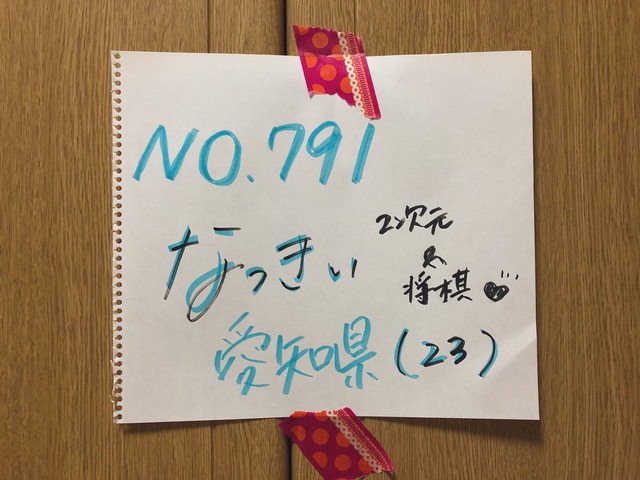 NO.791
なっきぃ
2次元
&
将棋♥
愛知県(23)